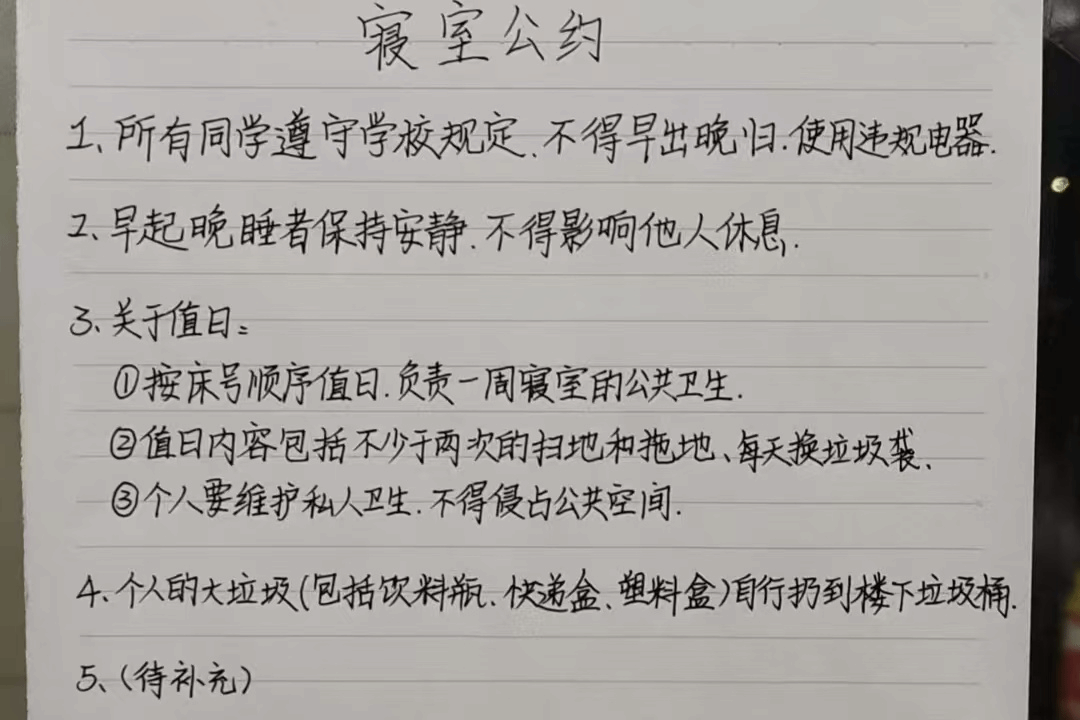 寝室公约
1、所有同学遵守学校规定、不得早出晚归.使用违规电器.
2、早起晚睡者保持安静.不得影响他人休息.
3、关于值日:
①按床号顺序值日.负责一周寝室的公共卫生.
②值日内容包括不少于两次的扫地和拖地、每天换垃圾袋、
③个人要维护私人卫生.不得侵占公共空间.
4、个人的大垃圾(包括饮料瓶、快递盒、塑料盒)自行扔到楼下垃圾桶.
5、(待补充)